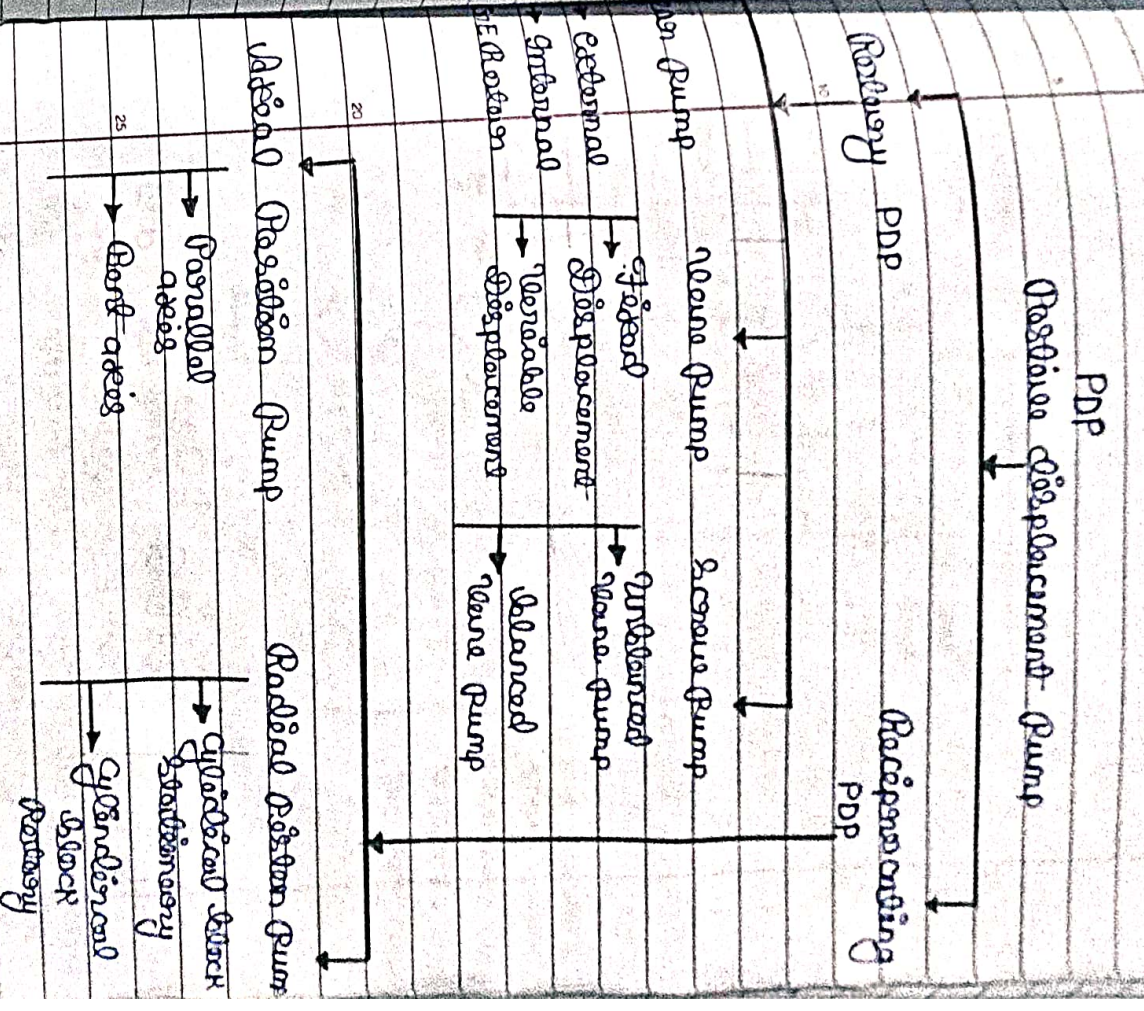 PDP
Positive displacement Pump
Rotary PDP
Reciprocating PDP
10
Pump
Vane Pump
Screw Pump
external
Internal
Fixed Displacement
Variable Displacement
Unblanced Vane pump
blanced Vane Pump
20
Axial Position Pump
Radial Piston Pum
Parallel axis
Bent-axis
25
Cylidical block Stationary
Cylindircal block Rotary